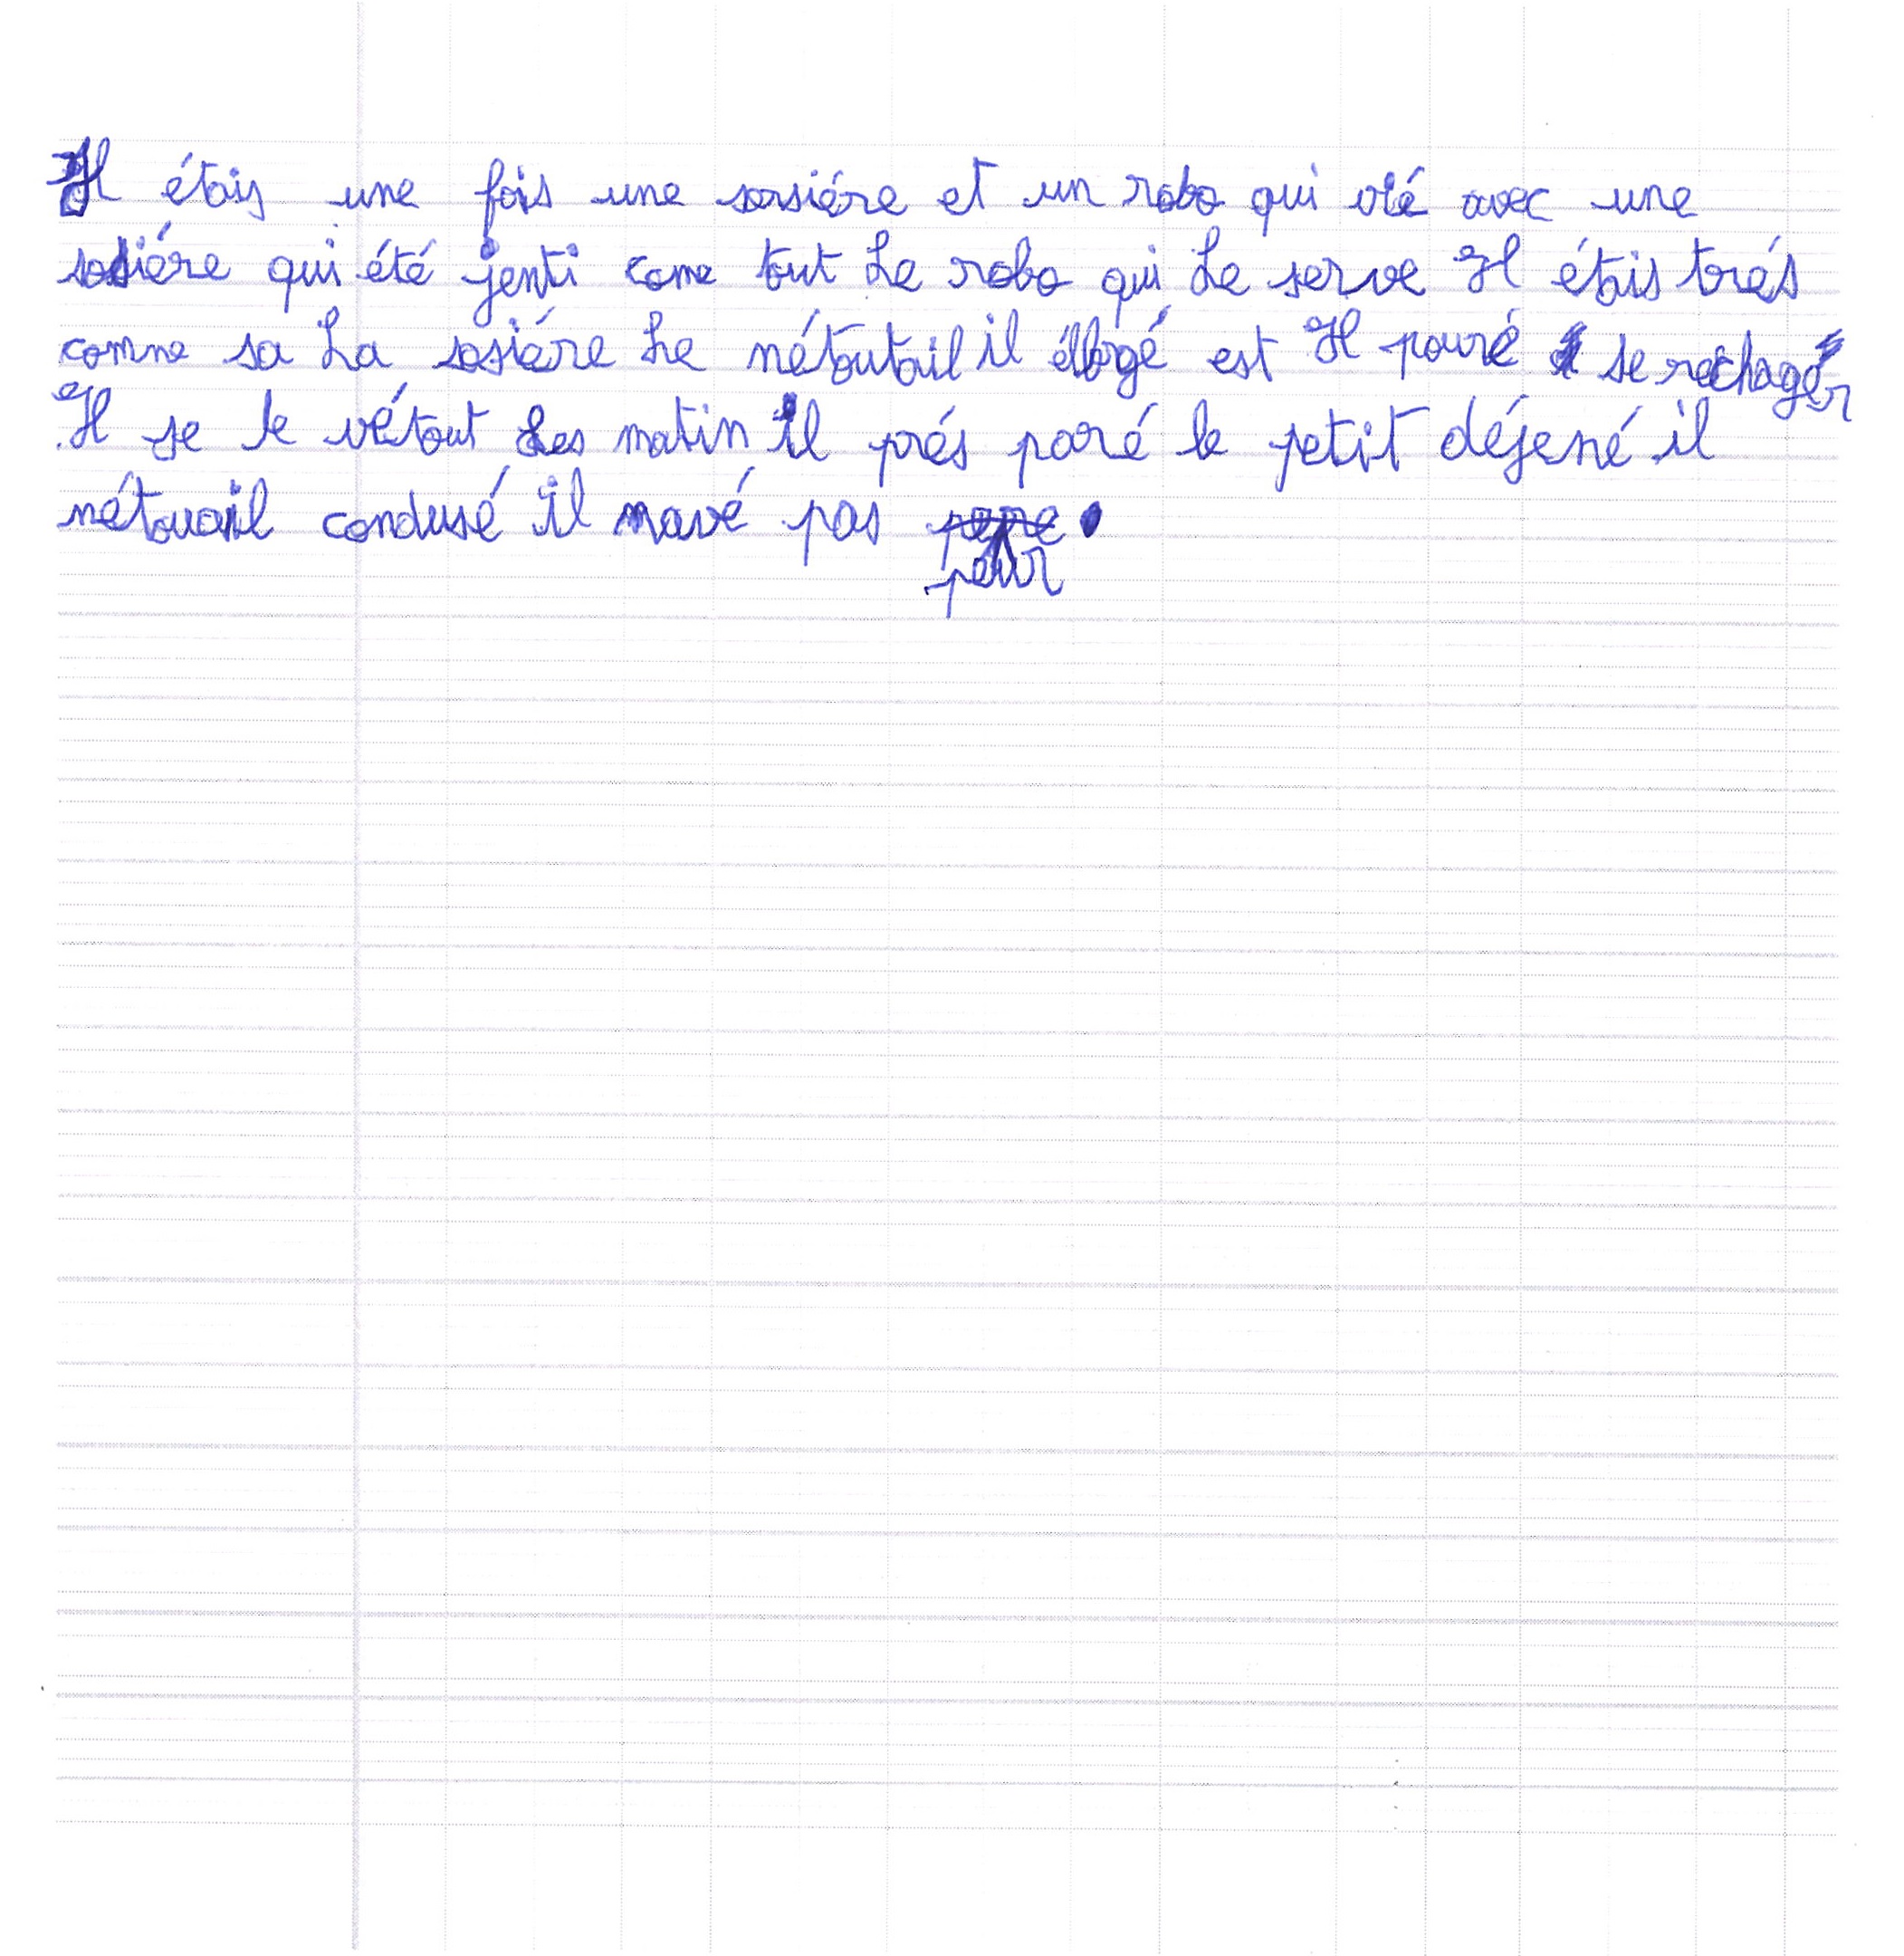 Il étais une fois une sorsiére et un robo qui vié avec une
sosiére qui été jenti come tout Le robo qui Le serve Il étais trés
comne sa La sosiére Le nétoutail il élorgé est Il pouré se rechagér
Il se le vétout Les matin il prés paré le petit déjené il
nétouail condusé il navé pas pere.
peur